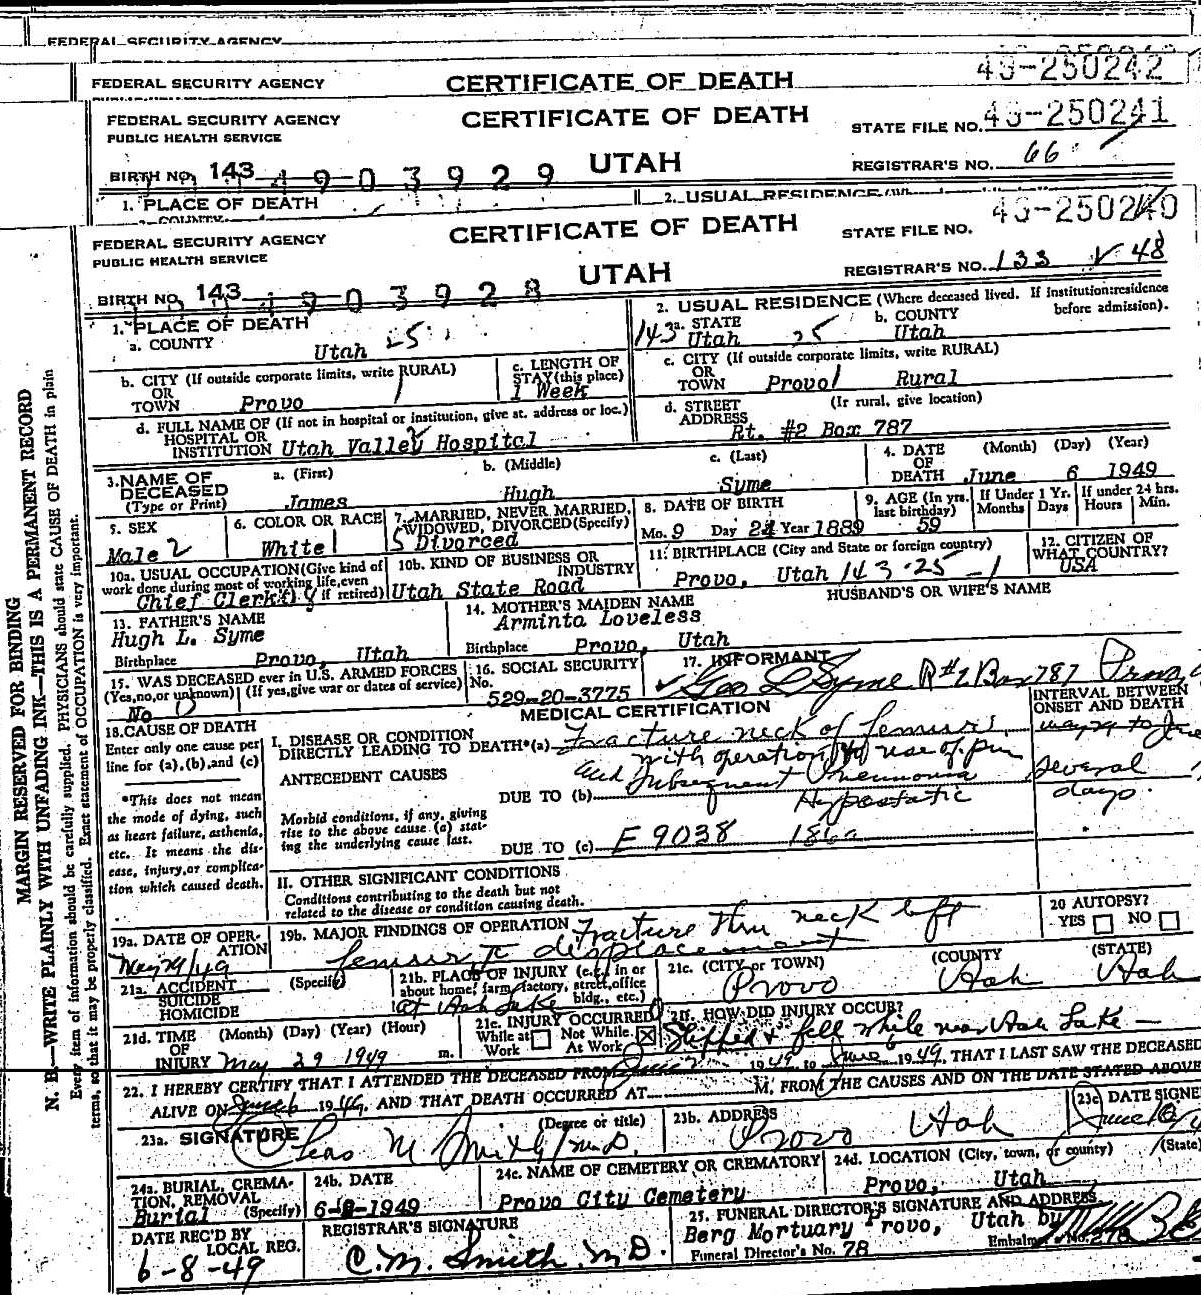 FEDERAL SECURITY AGENCY
FEDERAL SECURITY AGENCY CERTIFICATE OF DEATH 49-250242
FEDERAL SECURITY AGENCY CERTIFICATE OF DEATH STATE FILE NO. 49-250241
PUBLIC HEALTH SERVICE
BIRTH NO. 143 4903929 UTAH REGISTRAR'S NO. 66
1. PLACE OF DEATH 2. USUAL RESIDENCE
a. COUNTY
FEDERAL SECURITY AGENCY CERTIFICATE OF DEATH STATE FILE NO. 49-250240
PUBLIC HEALTH SERVICE
BIRTH NO. 143 4903928 UTAH REGISTRAR'S NO. 133 48
1. PLACE OF DEATH 2. USUAL RESIDENCE (Where deceased lived. If institution: residence before admission).
a. COUNTY Utah 25 143 a. STATE Utah 25 b. COUNTY Utah
b. CITY (If outside corporate limits, write RURAL) OR TOWN Provo c. LENGTH OF STAY (this place) 1 Week
c. CITY (If outside corporate limits, write RURAL) OR TOWN Provo Rural
d. FULL NAME OF (If not in hospital or institution, give st. address or loc.) HOSPITAL OR INSTITUTION Utah Valley Hospital
d. STREET ADDRESS (If rural, give location) Rt. #2 Box 787
3. NAME OF DECEASED (Type or Print) a. (First) James b. (Middle) Hugh c. (Last) Syme
4. DATE OF DEATH (Month) (Day) (Year) June 6 1949
5. SEX Male 2 6. COLOR OR RACE White 1 7. MARRIED, NEVER MARRIED, WIDOWED, DIVORCED (Specify) 5 Divorced
8. DATE OF BIRTH Mo. 9 Day 24 Year 1889 9. AGE (In yrs. last birthday) 59 If Under 1 Yr. Months Days If under 24 hrs. Hours Min.
10a. USUAL OCCUPATION (Give kind of work done during most of working life, even if retired) Chief Clerk
10b. KIND OF BUSINESS OR INDUSTRY Utah State Road
11. BIRTHPLACE (City and State or foreign country) Provo, Utah 143-25-1
12. CITIZEN OF WHAT COUNTRY? USA
13. FATHER'S NAME Hugh L. Syme
Birthplace Provo, Utah
14. MOTHER'S MAIDEN NAME Arminta Loveless
Birthplace Provo, Utah
HUSBAND'S OR WIFE'S NAME
15. WAS DECEASED ever in U.S. ARMED FORCES (Yes, no, or unknown) (If yes, give war or dates of service) No 0
16. SOCIAL SECURITY No. 529-20-3775
17. INFORMANT Geo L Syme R#2 Box 787
MEDICAL CERTIFICATION
18. CAUSE OF DEATH
Enter only one cause per line for (a), (b), and (c)
*This does not mean the mode of dying, such as heart failure, asthenia, etc. It means the disease, injury, or complication which caused death.
I. DISEASE OR CONDITION DIRECTLY LEADING TO DEATH*(a) Fracture neck of femur
with operation use of pin
ANTECEDENT CAUSES and subsequent Pneumonia
DUE TO (b) Hypostatic
Morbid conditions, if any, giving rise to the above cause (a) stating the underlying cause last.
DUE TO (c) E 9038 186a
INTERVAL BETWEEN ONSET AND DEATH
May 29 to June
several days.
II. OTHER SIGNIFICANT CONDITIONS
Conditions contributing to the death but not related to the disease or condition causing death.
19a. DATE OF OPERATION May 29/49 19b. MAJOR FINDINGS OF OPERATION Fracture thru neck left femur c displacement
20 AUTOPSY? YES NO
21a. ACCIDENT SUICIDE HOMICIDE (Specify)
21b. PLACE OF INJURY (e.g., in or about home, farm, factory, street, office bldg., etc.) at Utah Lake
21c. (CITY or TOWN) (COUNTY (STATE) Provo Utah Utah
21d. TIME OF INJURY (Month) (Day) (Year) (Hour) m. May 29 1949
21e. INJURY OCCURRED While at Work Not While At Work
21f. HOW DID INJURY OCCUR? Slipped & fell while near Utah Lake
22. I HEREBY CERTIFY THAT I ATTENDED THE DECEASED FROM 1949 to June 6 1949, THAT I LAST SAW THE DECEASED
ALIVE ON June 6 1949, AND THAT DEATH OCCURRED AT M, FROM THE CAUSES AND ON THE DATE STATED ABOVE
23a. SIGNATURE (Degree or title) Chas M Smith M.D. 23b. ADDRESS Provo Utah 23c DATE SIGNE
24a. BURIAL, CREMATION, REMOVAL (Specify) Burial 24b. DATE 6-8-1949
24c. NAME OF CEMETERY OR CREMATORY Provo City Cemetery
24d. LOCATION (City, town, or county) (State) Provo, Utah
DATE REC'D BY LOCAL REG. 6-8-49 REGISTRAR'S SIGNATURE C. M. Smith. M D.
25. FUNERAL DIRECTOR'S SIGNATURE AND ADDRESS Berg Mortuary Provo, Utah by
Funeral Director's No. 78 Embalm No. 278
MARGIN RESERVED FOR BINDING
N. B.—WRITE PLAINLY WITH UNFADING INK—THIS IS A PERMANENT RECORD
Every item of information should be carefully supplied. PHYSICIANS should state CAUSE OF DEATH in plain
terms, so that it may be properly classified. Exact statement of OCCUPATION is very important.